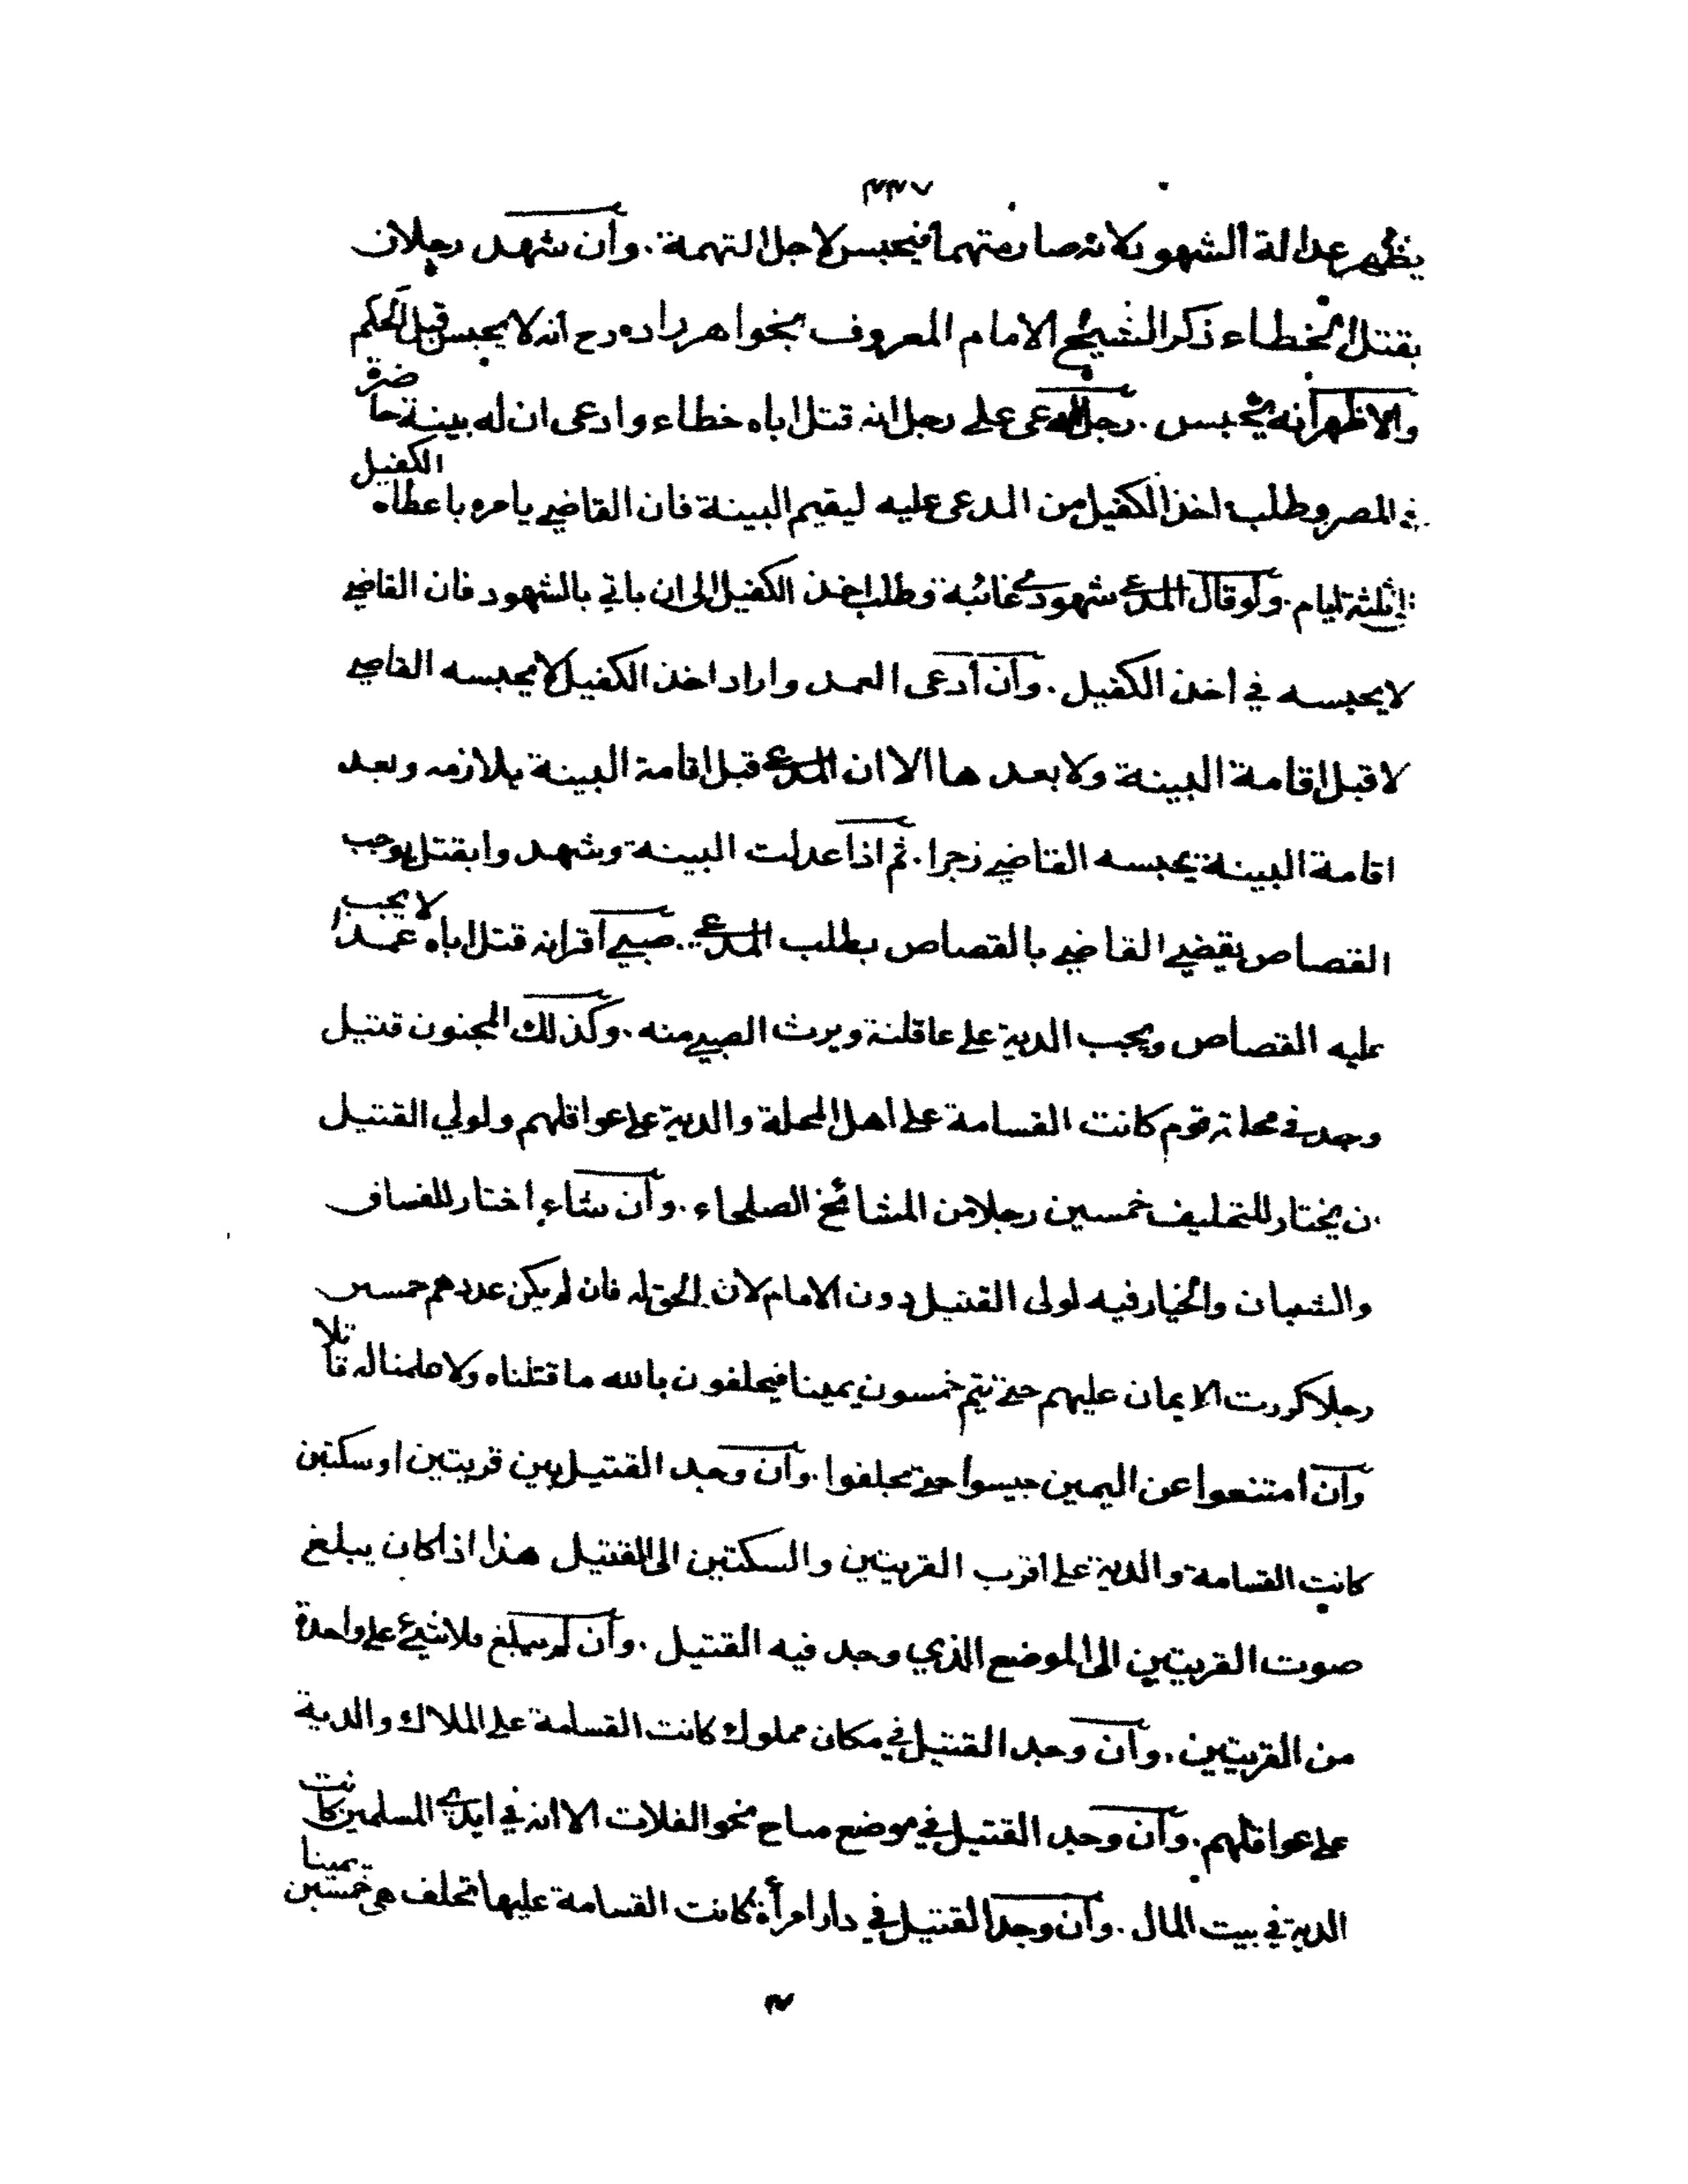 ٣٣٧
يظهر عدالة الشهود لانه صار متهما فيحبس لاجل التهمة . وان شهد رجلان
بقتل الخطاء ذكر الشيخ الامام المعروف بخواهر زاده رح انه لا يحبس قبل الحكم
والاظهر انه يحبس . رجل ادعى على رجل انه قتل اباه خطاء وادعى ان له بينة حاضرة
في المصر وطلب اخذ الكفيل من المدعى عليه ليقيم البينة فان القاضي يامره باعطاء الكفيل
الى ثلثة ايام . ولو قال المدعي شهودي غائبة وطلب اخذ الكفيل الى ان ياتي بالشهود فان القاضي
لا يحبسه في اخذ الكفيل . وان ادعى العمد واراد اخذ الكفيل لا يحبسه القاضي
لا قبل اقامة البينة ولا بعد ها الا ان المدعي قبل اقامة البينة يلازمه وبعد
اقامة البينة يحبسه القاضي زجرا . ثم اذا عدلت البينة وشهد وا بقتل يوجب
القصاص يقضي القاضي بالقصاص بطلب المدعي . صبي اقر انه قتل اباه عمدا لا يجب
عليه القصاص ويجب الدية على عاقلته ويرث الصبي منه . وكذلك المجنون قتيل
وجد في محلة قوم كانت القسامة على اهل المحلة والدية على عواقلهم ولولي القتيل
ان يختار للتحليف خمسين رجلا من المشائخ الصلحاء . وان شاء اختار للفساق
والشبان والخيار فيه لولى القتيل دون الامام لان الحق له فان لم يكن عددهم خمسين
رجلا كررت الايمان عليهم حتى تتم خمسون يمينا فيحلفون بالله ما قتلناه ولا علمنا له قاتلا
وان امتنعوا عن اليمين حبسوا حتى يحلفوا . وان وجد القتيل بين قريتين او سكتين
كانت القسامة والدية على اقرب القريتين والسكتين الى القتيل هذا اذا كان يبلغ
صوت القريتين الى الموضع الذي وجد فيه القتيل . وان لم يبلغ فلا شيء على واحدة
من القريتين . وان وجد القتيل في مكان مملوك كانت القسامة على الملاك والدية
على عواقلهم . وان وجد القتيل في موضع مباح نحو الفلات الا انه في ايدي المسلمين كانت
الدية في بيت المال . وان وجد القتيل في دار امرأة كانت القسامة عليها تحلف هي خمسين يمينا